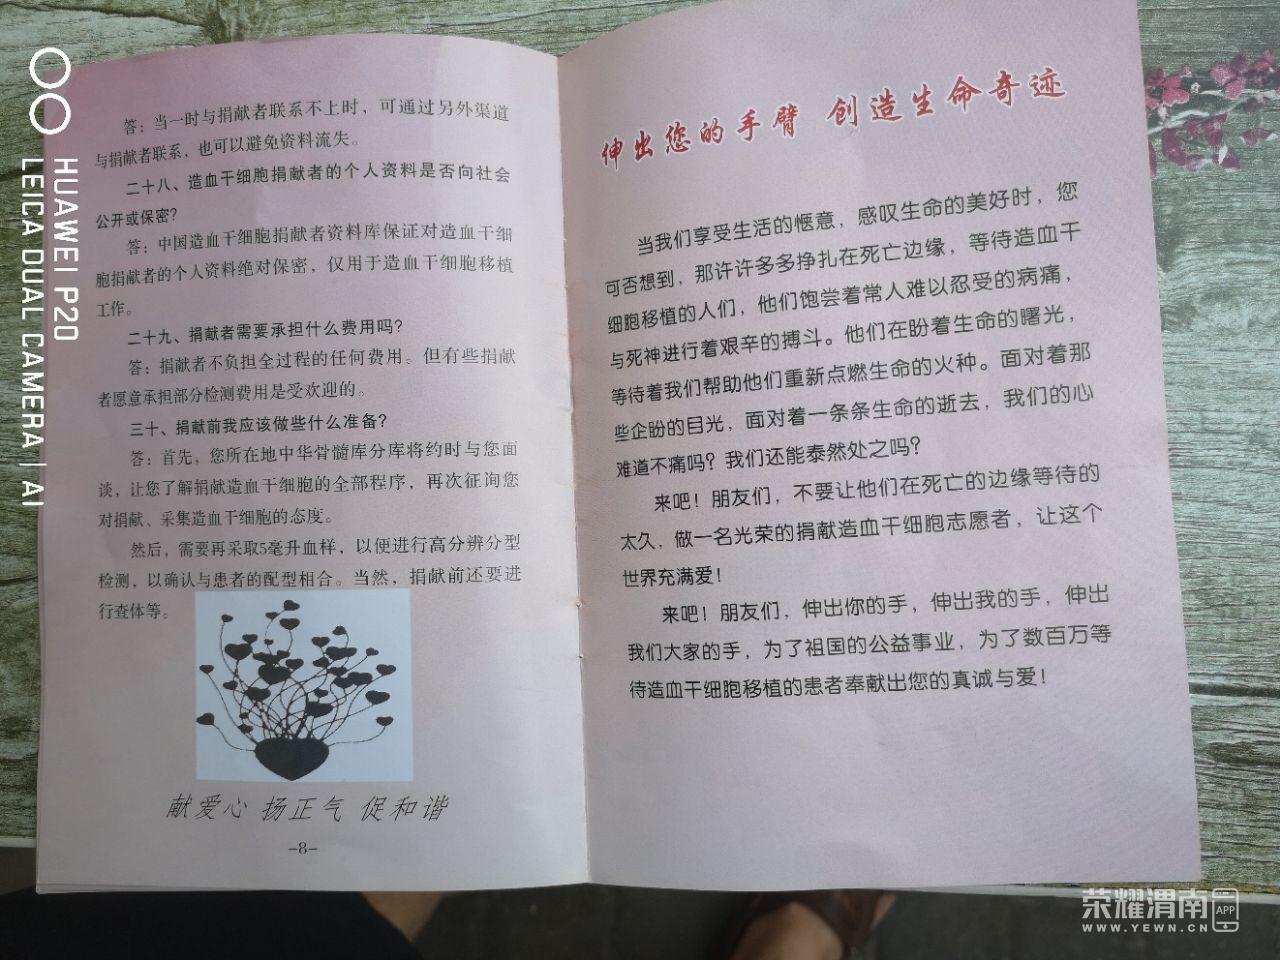 答：当一时与捐献者联系不上时，可通过另外渠道
与捐献者联系，也可以避免资料流失。
二十八、造血干细胞捐献者的个人资料是否向社会
公开或保密？
答：中国造血干细胞捐献者资料库保证对造血干细
胞捐献者的个人资料绝对保密，仅用于造血干细胞移植
工作。
二十九、捐献者需要承担什么费用吗？
答：捐献者不负担全过程的任何费用。但有些捐献
者愿意承担部分检测费用是受欢迎的。
三十、捐献前我应该做些什么准备？
答：首先，您所在地中华骨髓库分库将约时与您面
谈，让您了解捐献造血干细胞的全部程序，再次征询您
对捐献、采集造血干细胞的态度。
然后，需要再采取5毫升血样，以便进行高分辨分型
检测，以确认与患者的配型相合。当然，捐献前还要进
行查体等。
献爱心 扬正气 促和谐
-8-
伸出您的手臂 创造生命奇迹
当我们享受生活的惬意，感叹生命的美好时，您
可否想到，那许许多多挣扎在死亡边缘，等待造血干
细胞移植的人们，他们饱尝着常人难以忍受的病痛，
与死神进行着艰辛的搏斗。他们在盼着生命的曙光，
等待着我们帮助他们重新点燃生命的火种。面对着那
些企盼的目光，面对着一条条生命的逝去，我们的心
难道不痛吗？我们还能泰然处之吗？
来吧！朋友们，不要让他们在死亡的边缘等待的
太久，做一名光荣的捐献造血干细胞志愿者，让这个
世界充满爱！
来吧！朋友们，伸出你的手，伸出我的手，伸出
我们大家的手，为了祖国的公益事业，为了数百万等
待造血干细胞移植的患者奉献出您的真诚与爱！
HUAWEI P20
LEICA DUAL CAMERA | AI
荣耀渭南 APP
WWW.YEWN.CN